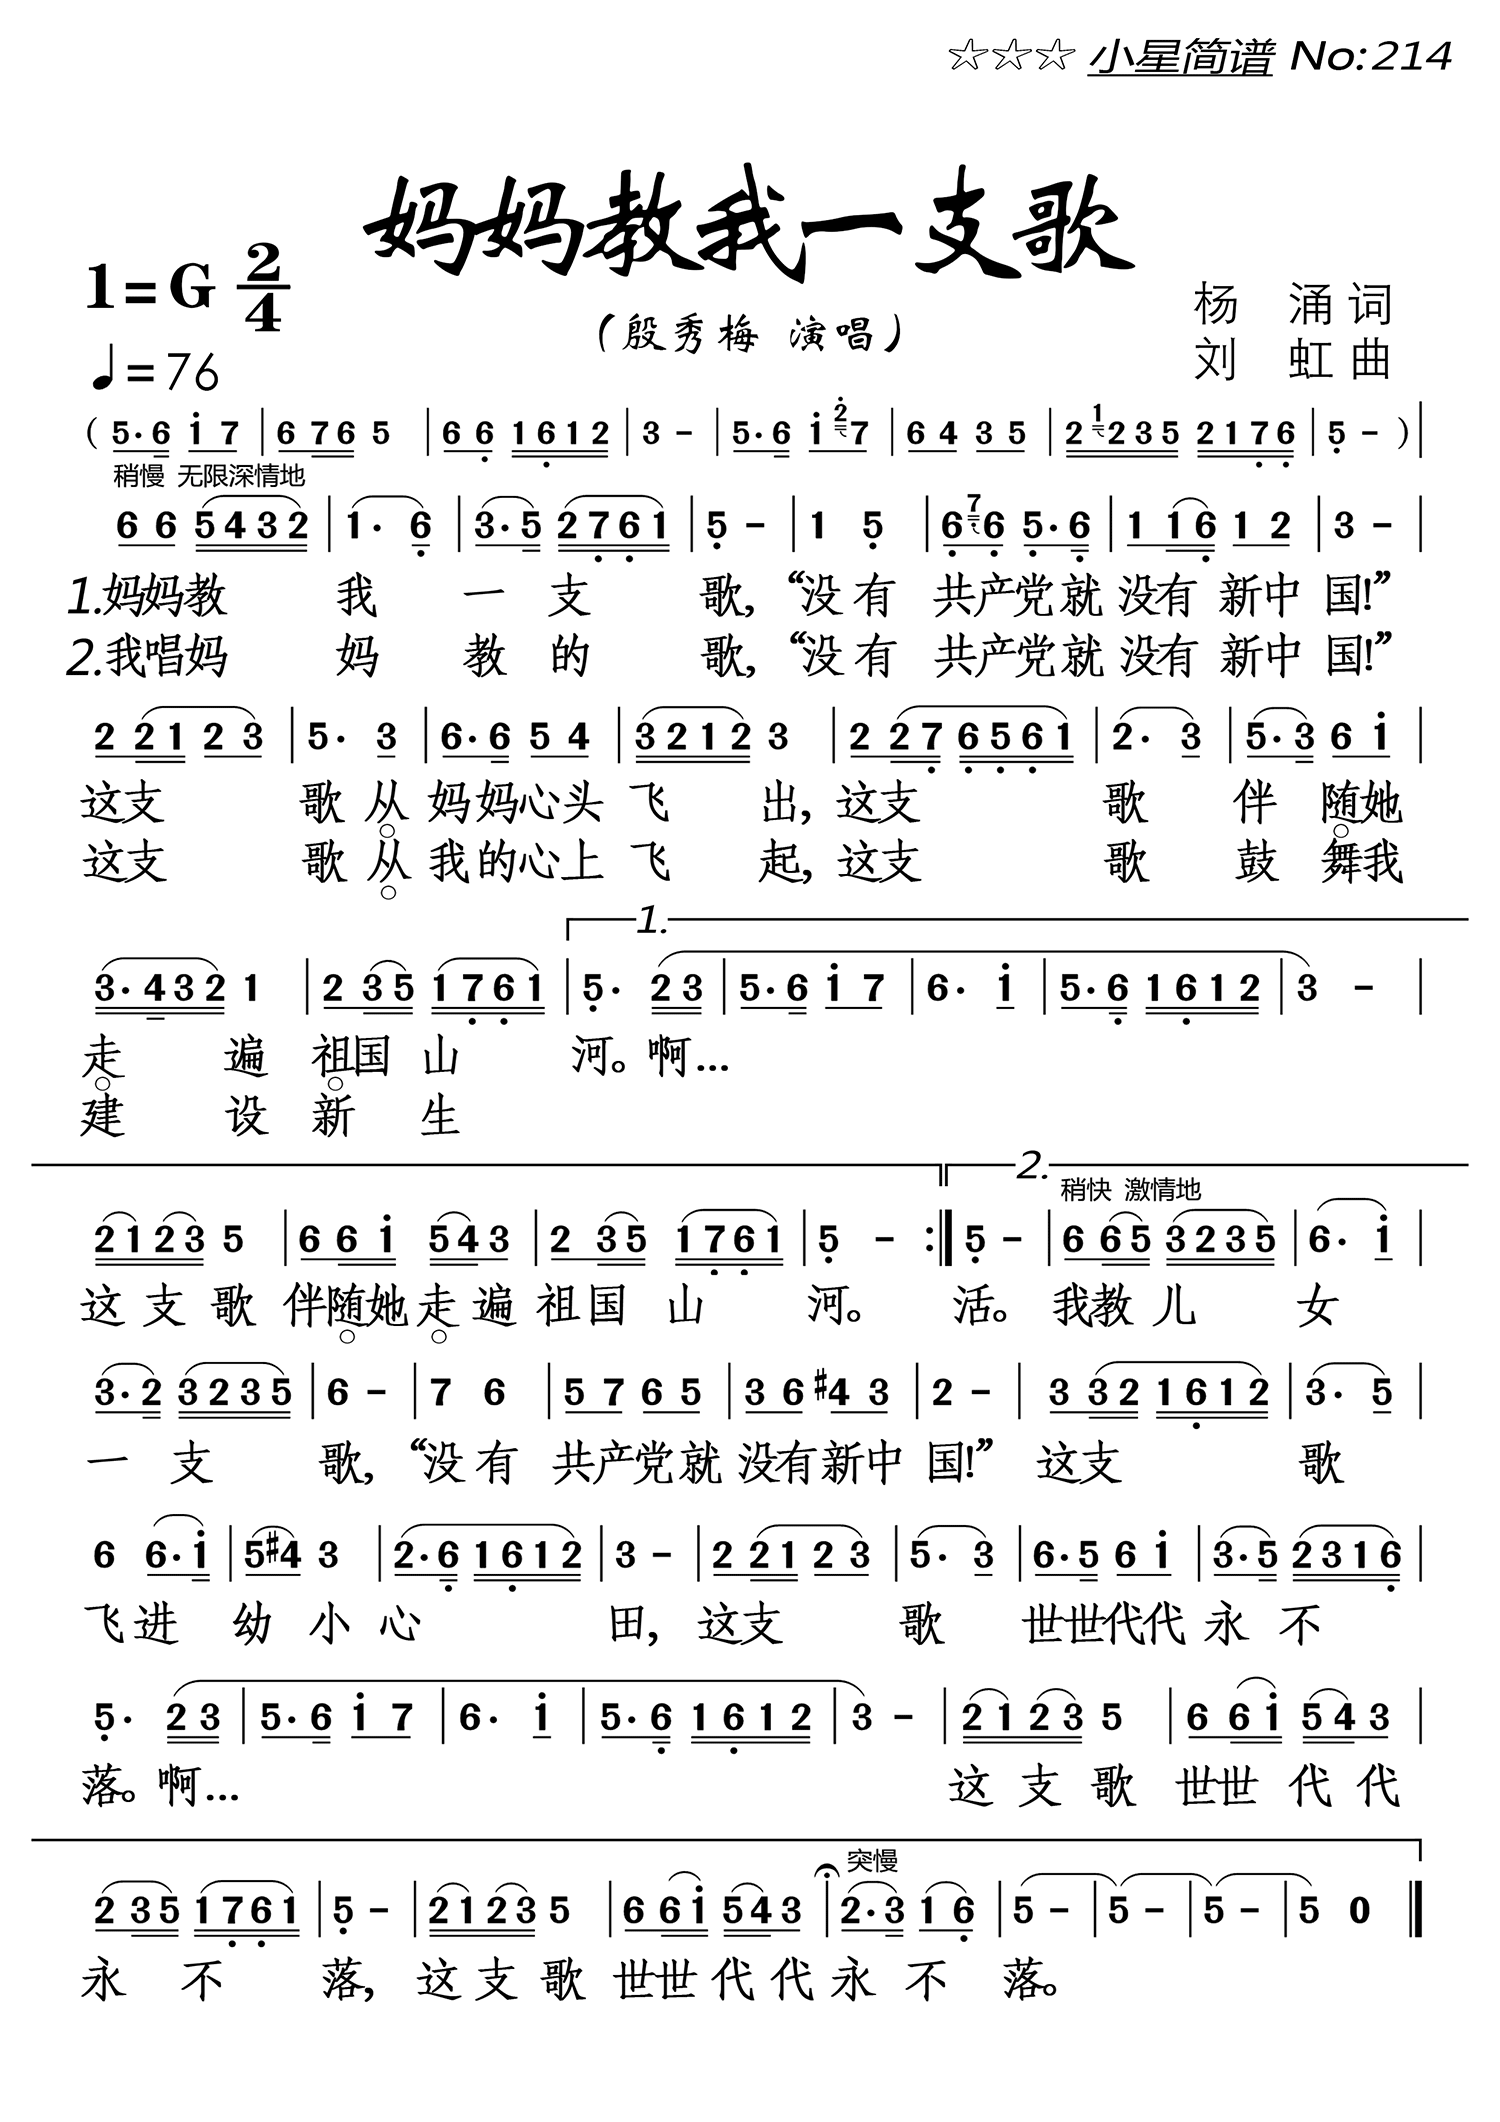 ☆☆☆ 小星简谱 No:214
妈妈教我一支歌
1=G 2/4
杨 涌 词
（殷秀梅 演唱）
刘 虹 曲
♩=76
（ 5·6 i 7 | 6 7 6 5 | 6 6 1 6 1 2 | 3 - | 5·6 i 2 7 | 6 4 3 5 | 2 1 2 3 5 2 1 7 6 | 5 - ） |
稍慢 无限深情地
6 6 5 4 3 2 | 1· 6 | 3·5 2 7 6 1 | 5 - | 1 5 | 6 7 6 5·6 | 1 1 6 1 2 | 3 - |
1.妈妈教 我 一 支 歌，“没 有 共产党就 没有 新中 国！”
2.我唱妈 妈 教 的 歌，“没 有 共产党就 没有 新中 国！”
2 2 1 2 3 | 5· 3 | 6·6 5 4 | 3 2 1 2 3 | 2 2 7 6 5 6 1 | 2· 3 | 5·3 6 i |
这支 歌 从 妈妈心头 飞 出，这支 歌 伴 随她
这支 歌 从 我的心上 飞 起，这支 歌 鼓 舞我
1.
3·4 3 2 1 | 2 3 5 1 7 6 1 | 5· 2 3 | 5·6 i 7 | 6· i | 5·6 1 6 1 2 | 3 - |
走 遍 祖国 山 河。啊…
建 设 新 生
2.
稍快 激情地
2 1 2 3 5 | 6 6 i 5 4 3 | 2 3 5 1 7 6 1 | 5 - :| 5 - | 6 6 5 3 2 3 5 | 6· i |
这 支 歌 伴随她 走 遍 祖 国 山 河。 活。 我教 儿 女
3·2 3 2 3 5 | 6 - | 7 6 | 5 7 6 5 | 3 6 #4 3 | 2 - | 3 3 2 1 6 1 2 | 3· 5 |
一 支 歌，“没 有 共产党就 没有新中 国！” 这支 歌
6 6·i | 5 #4 3 | 2·6 1 6 1 2 | 3 - | 2 2 1 2 3 | 5· 3 | 6·5 6 i | 3·5 2 3 1 6 |
飞 进 幼 小 心 田，这支 歌 世世代代 永 不
5· 2 3 | 5·6 i 7 | 6· i | 5·6 1 6 1 2 | 3 - | 2 1 2 3 5 | 6 6 i 5 4 3 |
落。啊… 这 支 歌 世世 代 代
突慢
2 3 5 1 7 6 1 | 5 - | 2 1 2 3 5 | 6 6 i 5 4 3 | 2·3 1 6 | 5 - | 5 - | 5 - | 5 0 ‖
永 不 落，这 支 歌 世世 代 代 永 不 落。